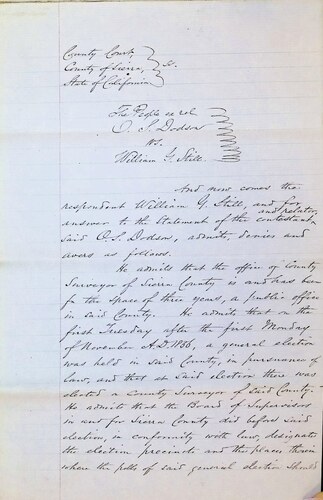 County Court,
County of Sierra, ss.
State of California
The People ex rel
O. S. Dodson
vs.
William G. Still.
And now comes the
respondent William G. Still, and for
answer to the Statement of the contestant
and relator,
said O. S. Dodson, admits, denies and
avers as follows.
He admits that the office of County
Surveyor of Sierra County is and has been
for the space of three years, a public office
in said County. He admits that on the
first Tuesday after the first Monday
of November A.D. 1856, a general election
was held in said County, in pursuance of
law, and that at said election there was
elected a County Surveyor of said County.
He admits that the Board of Supervisors
in and for Sierra County did before said
election, in conformity with law, designate
the election precincts and the places therein
where the polls of said general election should